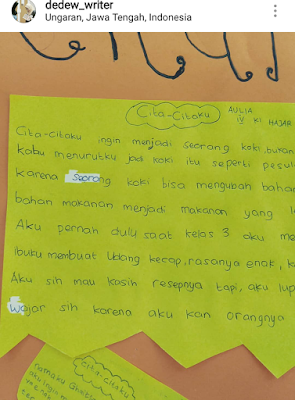 dedew_writer
Ungaran, Jawa Tengah, Indonesia
Cita-Citaku
AULIA
IV KI HAJAR
Cita-citaku ingin menjadi seorang koki, bukan
kabu menurutku jadi koki itu seperti pesul
karena seorang koki bisa mengubah bahan
bahan makanan menjadi makanan yang l
Aku pernah dulu saat kelas 3 aku me
ibuku membuat udang kecap, rasanya enak, k
Aku sih mau kasih resepnya tapi, aku lup
Wajar sih karena aku kan orangnya
Cita-Citaku
namaku
aku ingin